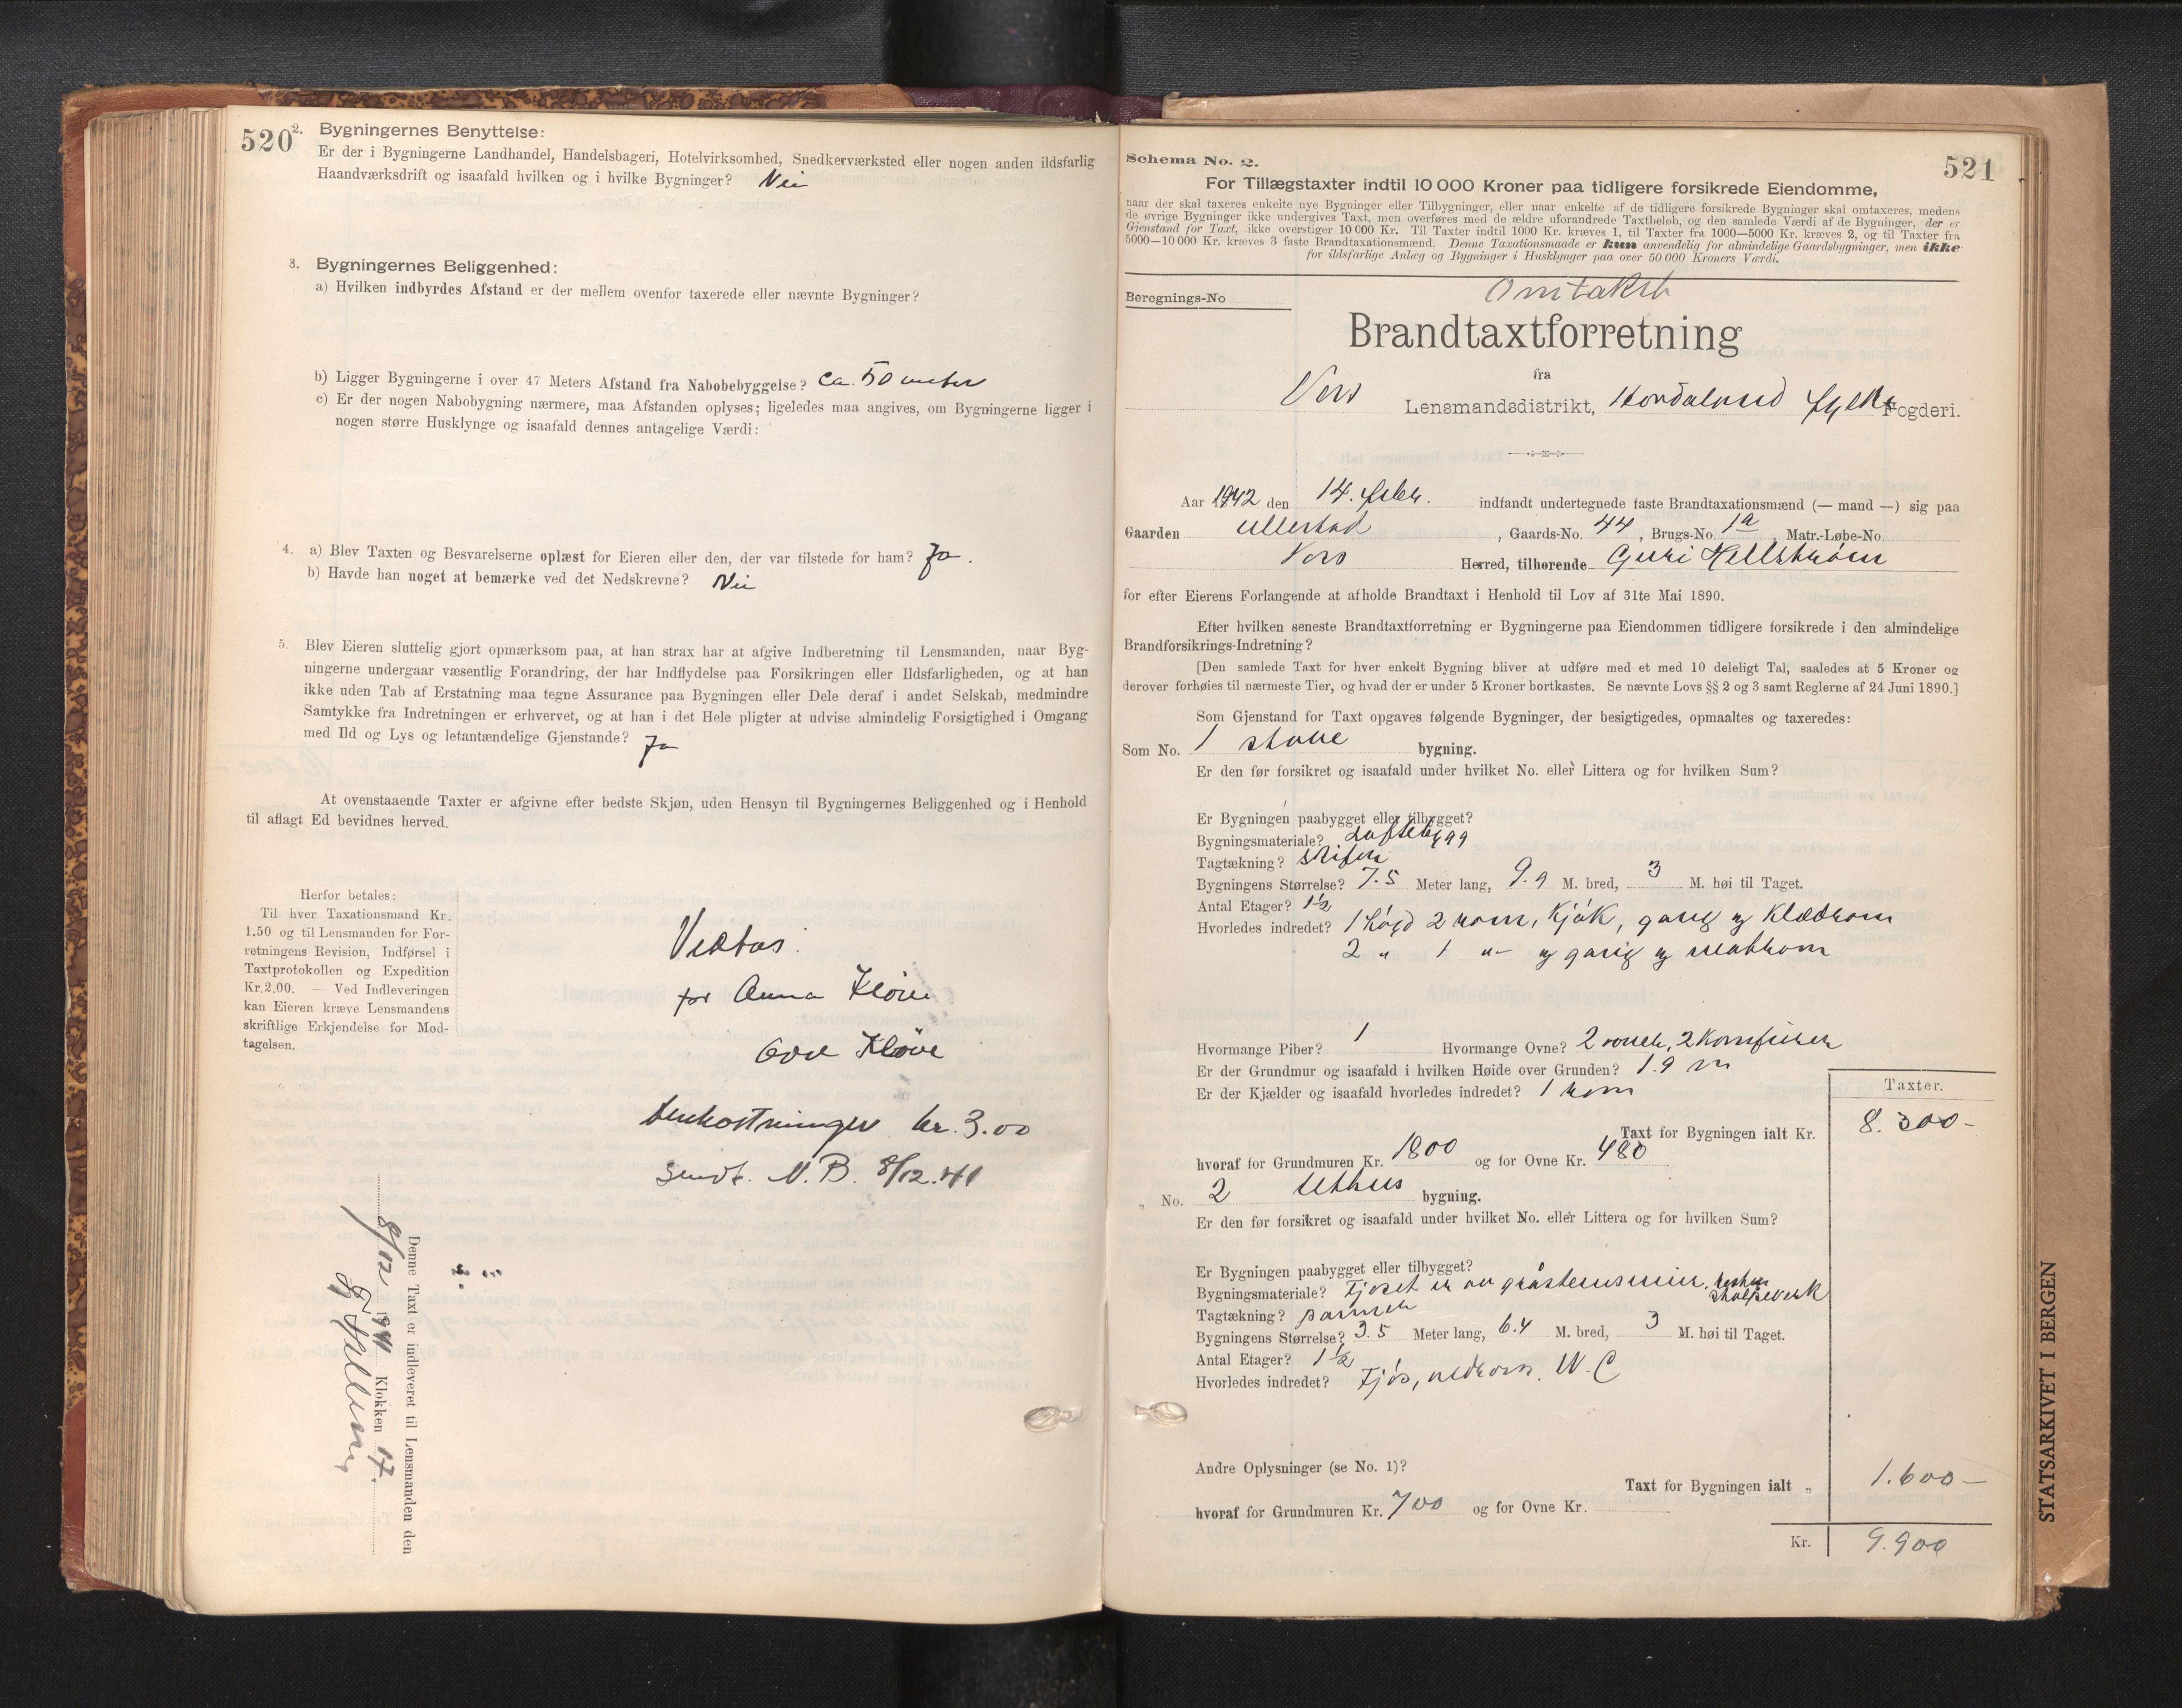 520
2. Bygningernes Benyttelse:
Er der i Bygningerne Landhandel, Handelsbageri, Hotelvirksomhed, Snedkerværksted eller nogen anden ildsfarlig
Haandværksdrift og isaafald hvilken og i hvilke Bygninger? Nei
3. Bygningernes Beliggenhed:
a) Hvilken indbyrdes Afstand er der mellem ovenfor taxerede eller nævnte Bygninger?
b) Ligger Bygningerne i over 47 Meters Afstand fra Nabobebyggelse? ca. 50 meter
c) Er der nogen Nabobygning nærmere, maa Afstanden oplyses; ligeledes maa angives, om Bygningerne ligger i
nogen større Husklynge og isaafald dennes antagelige Værdi:
4. a) Blev Taxten og Besvarelserne oplæst for Eieren eller den, der var tilstede for ham? Ja.
b) Havde han noget at bemærke ved det Nedskrevne? Nei
5. Blev Eieren sluttelig gjort opmærksom paa, at han strax har at afgive Indberetning til Lensmanden, naar Byg-
ningerne undergaar væsentlig Forandring, der har Indflydelse paa Forsikringen eller Ildsfarligheden, og at han
ikke uden Tab af Erstatning maa tegne Assurance paa Bygningen eller Dele deraf i andet Selskab, medmindre
Samtykke fra Indretningen er erhvervet, og at han i det Hele pligter at udvise almindelig Forsigtighed i Omgang
med Ild og Lys og letantændelige Gjenstande? Ja
At ovenstaaende Taxter er afgivne efter bedste Skjøn, uden Hensyn til Bygningernes Beliggenhed og i Henhold
til aflagt Ed bevidnes herved.
Herfor betales:
Til hver Taxationsmand Kr.
1.50 og til Lensmanden for For-
retningens Revision, Indførsel i
Taxtprotokollen og Expedition
Kr.2.00. — Ved Indleveringen
kan Eieren kræve Lensmandens
skriftlige Erkjendelse for Mod-
tagelsen.
Vedtas.
for Anna Kløve
Kløve
Omkostninger kr. 3.00
Sendt. N. B. 8/12.41
Denne Taxt er indleveret til Lensmanden den
8/12 1941 Klokken 17.
521
Schema No. 2.
For Tillægstaxter indtil 10 000 Kroner paa tidligere forsikrede Eiendomme,
naar der skal taxeres enkelte nye Bygninger eller Tilbygninger, eller naar enkelte af de tidligere forsikrede Bygninger skal omtaxeres, medens
de øvrige Bygninger ikke undergives Taxt, men overføres med de ældre uforandrede Taxtbeløb, og den samlede Værdi af de Bygninger, der er
Gjenstand for Taxt, ikke overstiger 10 000 Kr. Til Taxter indtil 1000 Kr. kræves 1, til Taxter fra 1000—5000 Kr. kræves 2, og til Taxter fra
5000—10 000 Kr. kræves 3 faste Brandtaxationsmænd. Denne Taxationsmaade er kun anvendelig for almindelige Gaardsbygninger, men ikke
for ildsfarlige Anlæg og Bygninger i Husklynger paa over 50 000 Kroners Værdi.
Beregnings-No
Omtakst
Brandtaxtforretning
fra
Voss Lensmandsdistrikt, Hordaland fylke Fogderi.
Aar 1942 den 14. febr. indfandt undertegnede faste Brandtaxationsmænd (— mand —) sig paa
Gaarden Ullestad, Gaards-No. 44, Brugs-No. 1a, Matr.-Løbe-No.
Voss Herred, tilhørende Guri Hellstrøm
for efter Eierens Forlangende at afholde Brandtaxt i Henhold til Lov af 31te Mai 1890.
Efter hvilken seneste Brandtaxtforretning er Bygningerne paa Eiendommen tidligere forsikrede i den almindelige
Brandforsikrings-Indretning?
[Den samlede Taxt for hver enkelt Bygning bliver at udføre med et med 10 deleligt Tal, saaledes at 5 Kroner og
derover forhøies til nærmeste Tier, og hvad der er under 5 Kroner bortkastes. Se nævnte Lovs §§ 2 og 3 samt Reglerne af 24 Juni 1890.]
Som Gjenstand for Taxt opgaves følgende Bygninger, der besigtigedes, opmaaltes og taxeredes:
Som No. 1 stove bygning.
Er den før forsikret og isaafald under hvilket No. eller Littera og for hvilken Sum?
Er Bygningen paabygget eller tilbygget?
Bygningsmateriale? Laftebygg
Tagtækning? skifer
Bygningens Størrelse? 7.5 Meter lang, 9.9 M. bred, 3 M. høi til Taget.
Antal Etager? 1½
Hvorledes indredet? 1 høgd 2 rom, kjøk, gang og klædrom
2 " 1 "- og gang og matrom
Hvormange Piber? 1 Hvormange Ovne? 2 ovner, 2 komfurer
Er der Grundmur og isaafald i hvilken Høide over Grunden? 1.9 m
Er der Kjælder og isaafald hvorledes indredet? 1 rom
Taxter.
Taxt for Bygningen ialt Kr. 8.300-
hvoraf for Grundmuren Kr. 1800 og for Ovne Kr. 480
" No. 2 Uthus bygning.
Er den før forsikret og isaafald under hvilket No. eller Littera og for hvilken Sum?
Er Bygningen paabygget eller tilbygget?
Bygningsmateriale? Fjoset er av gråsteinsmur, resten stolpeverk
Tagtækning? panner
Bygningens Størrelse? 3.5 Meter lang, 6.4 M. bred, 3 M. høi til Taget.
Antal Etager? 1½
Hvorledes indredet? Fjøs, vedrom, W.C
Andre Oplysninger (se No. 1)?
Taxt for Bygningen ialt " 1.600-
hvoraf for Grundmuren Kr. 700 og for Ovne Kr.
Kr. 9.900
STATSARKIVET I BERGEN